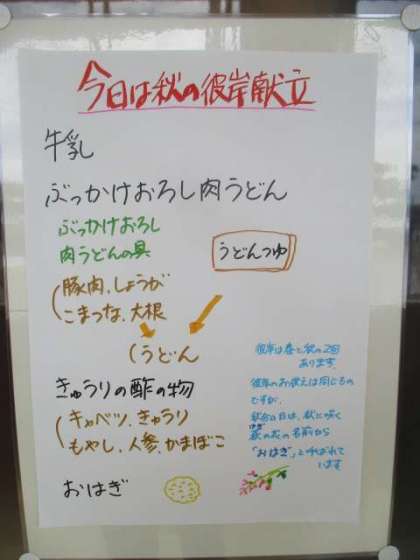 今日は秋の彼岸献立
牛乳
ぶっかけおろし肉うどん
ぶっかけおろし
肉うどんの具
うどんつゆ
(豚肉、しょうが
こまつな、大根
(うどん
きゅうりの酢の物
(キャベツ、きゅうり
もやし、人参、かまぼこ
おはぎ
彼岸は春と秋の2回
あります。
彼岸のお供えは同じもの
ですが、
秋分の日は、秋に咲く
萩の花の名前から
はぎ
「おはぎ」と呼ばれて
います